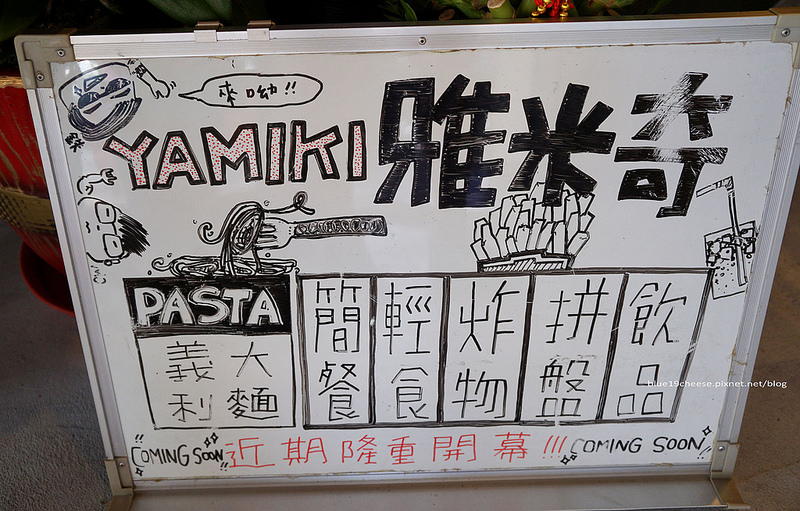 來呦!!
YAMIKI 雅米奇
PASTA
義大
利麵
簡餐
輕食
炸物
拼盤
飲品
COMING SOON 近期隆重開幕!!! COMING SOON
blue19cheese.pixnet.net/blog